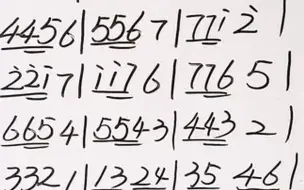 4456|5567|77i̇ 2̇|
2̇2̇i̇7|i̇i̇76|7765|
6654|5543|443 2|
3321|1324|35 46|